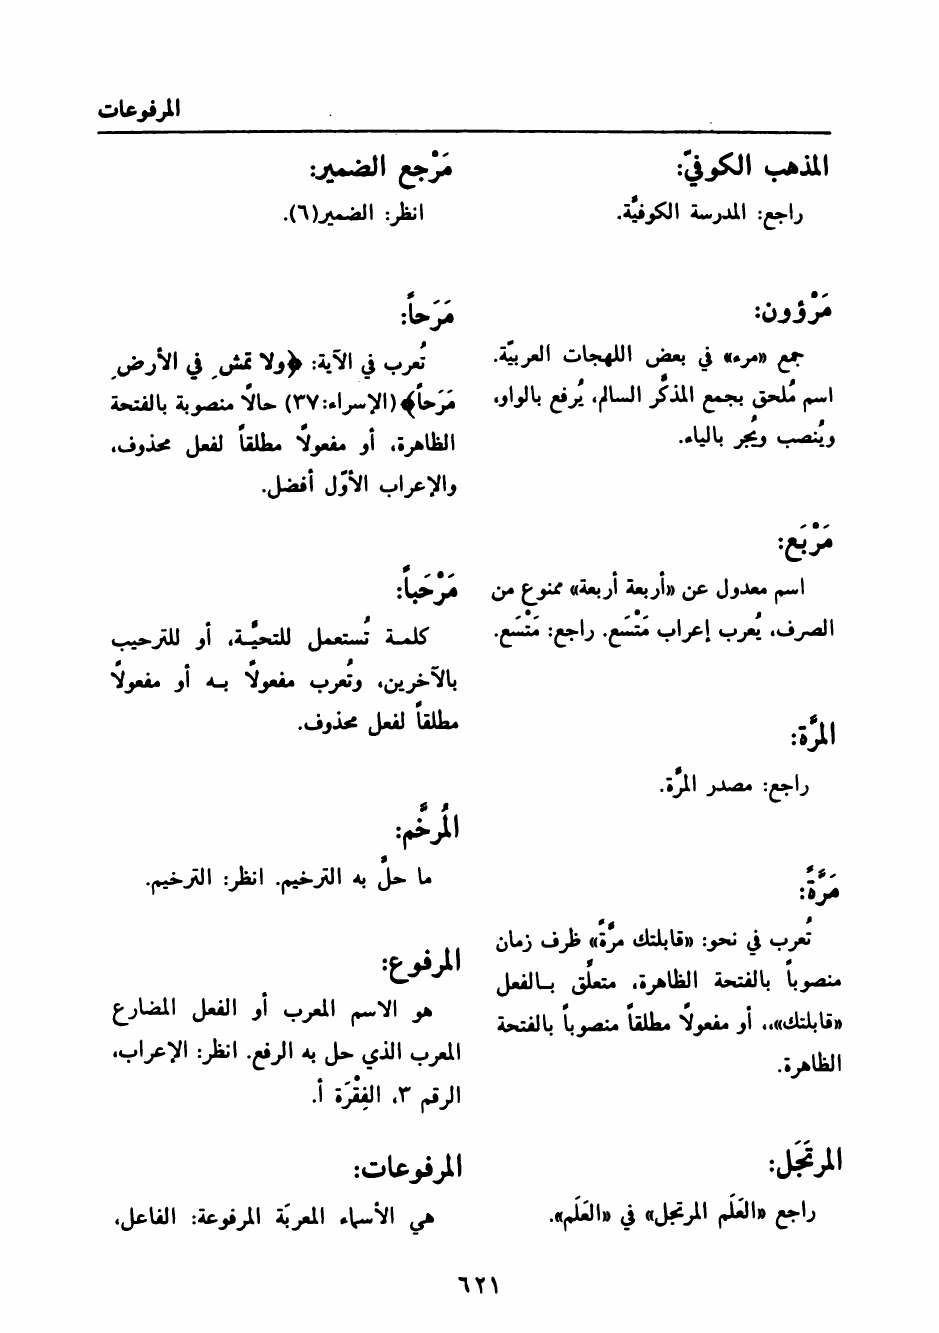 المرفوعات
المذهب الكوفيّ:
راجع: المدرسة الكوفيَّة.
مَرْؤون:
جمع «مرء» في بعض اللهجات العربيّة.
اسم مُلحق بجمع المذكَّر السالم، يُرفع بالواو،
ويُنصب ويُجر بالياء.
مَرْبَع:
اسم معدول عن «أربعة أربعة» ممنوع من
الصرف، يُعرب إعراب مَتْسَع. راجع: مَتْسَع.
المرَّة:
راجع: مصدر المرَّة.
مَرَّةً:
تُعرب في نحو: «قابلتك مرَّةً» ظرف زمان
منصوباً بالفتحة الظاهرة، متعلِّق بـالفعل
«قابلتك»،، أو مفعولاً مطلقاً منصوباً بالفتحة
الظاهرة.
المرتَجَل:
راجع «العَلَم المرتجل» في «العَلَم».
مَرْجع الضمير:
انظر: الضمير(٦).
مَرَحاً:
تُعرب في الآية: ﴿ولا تمشِ في الأرضِ
مَرَحاً﴾ (الإسراء:٣٧) حالاً منصوبة بالفتحة
الظاهرة، أو مفعولاً مطلقاً لفعل محذوف،
والإعراب الأوّل أفضل.
مَرْحَباً:
كلمـة تُستعمل للتحيَّـة، أو للترحيب
بالآخرين، وتُعرب مفعولاً بـه أو مفعولاً
مطلقاً لفعل محذوف.
المُرخَّم:
ما حلَّ به الترخيم. انظر: الترخيم.
المرفوع:
هو الاسم المعرب أو الفعل المضارع
المعرب الذي حل به الرفع. انظر: الإعراب،
الرقم ٣، الفِقْرَة أ.
المرفوعات:
هي الأسماء المعربَة المرفوعة: الفاعل،
٦٢١